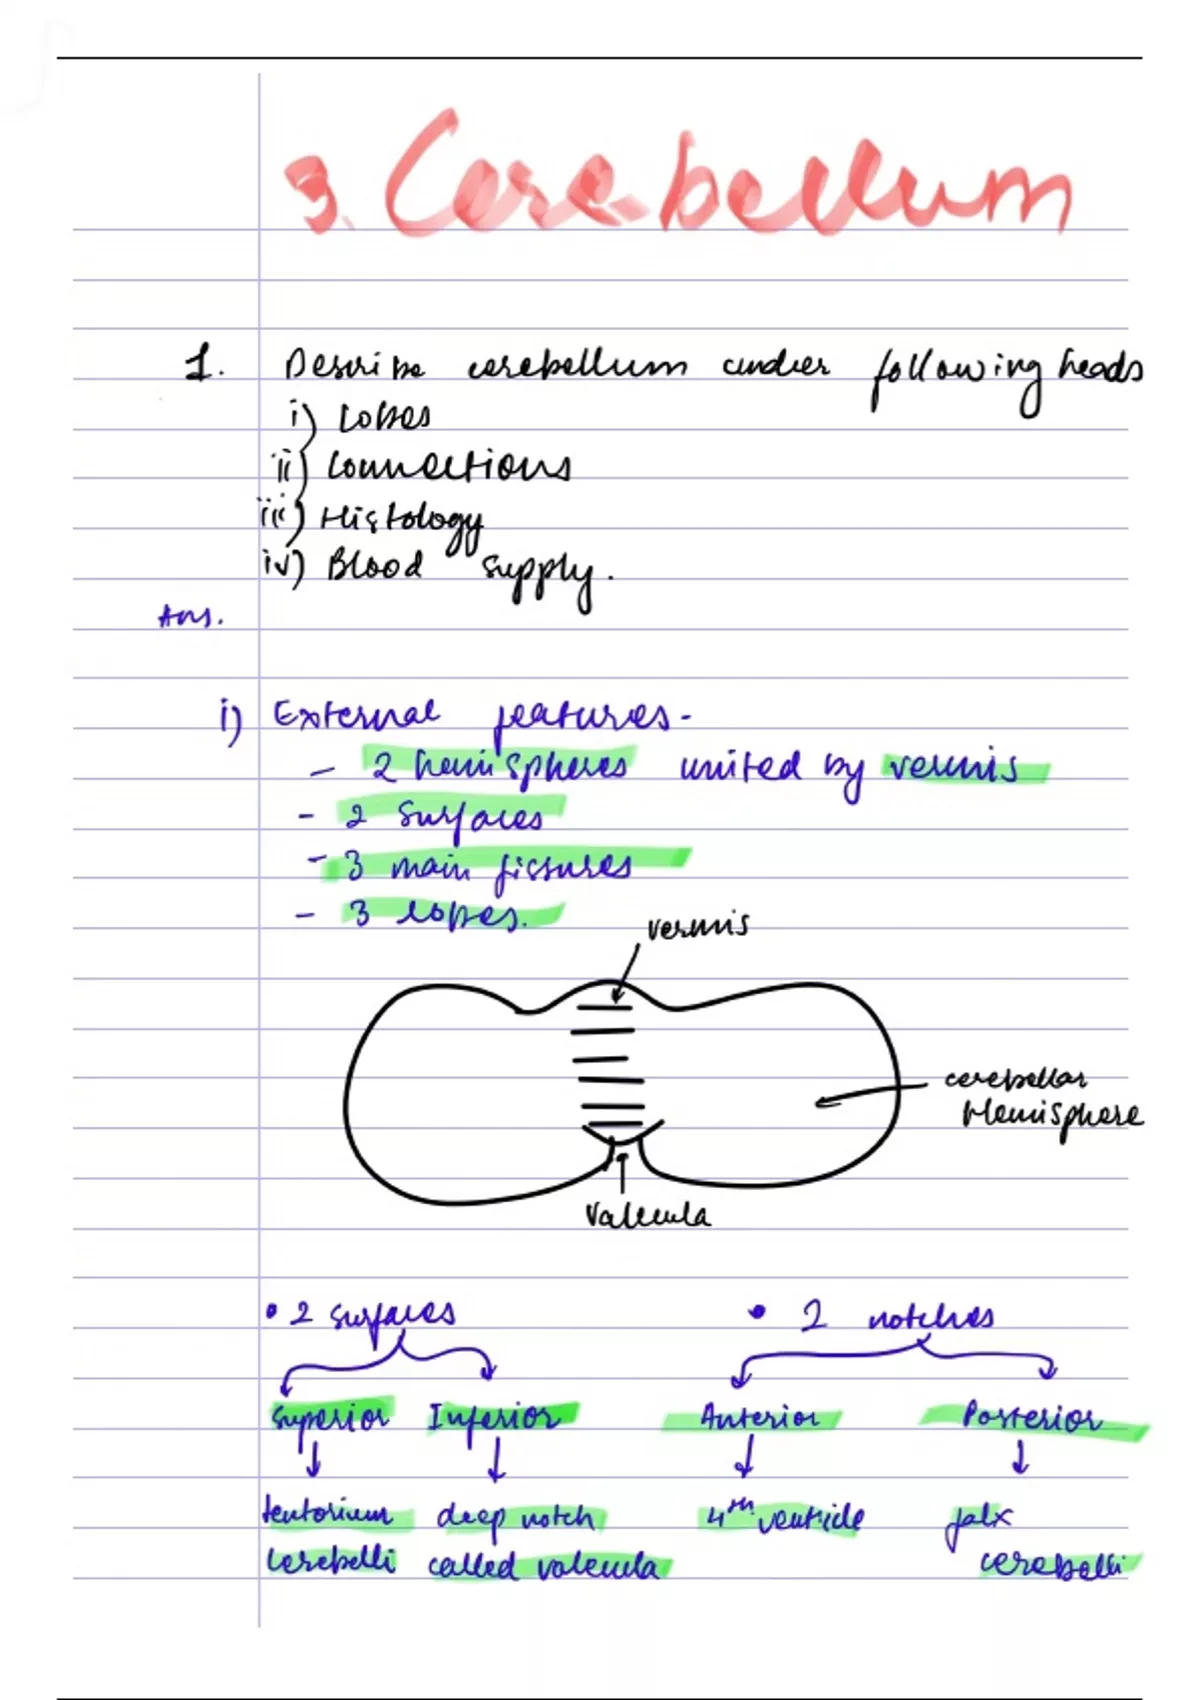 3. Cerebellum
1. Describe cerebellum under following heads
i) Lobes
ii) Connections
iii) Histology
iv) Blood supply.
Ans.
i) External features-
- 2 hemispheres united by vermis
- 2 Surfaces
- 3 main fissures
- 3 lobes.
vermis
cerebellar
Hemisphere
Valecula
• 2 surfaces
• 2 notches
Superior Inferior Anterior Posterior
tentorium deep notch 4th ventricle falx
cerebelli called valecula cerebelli